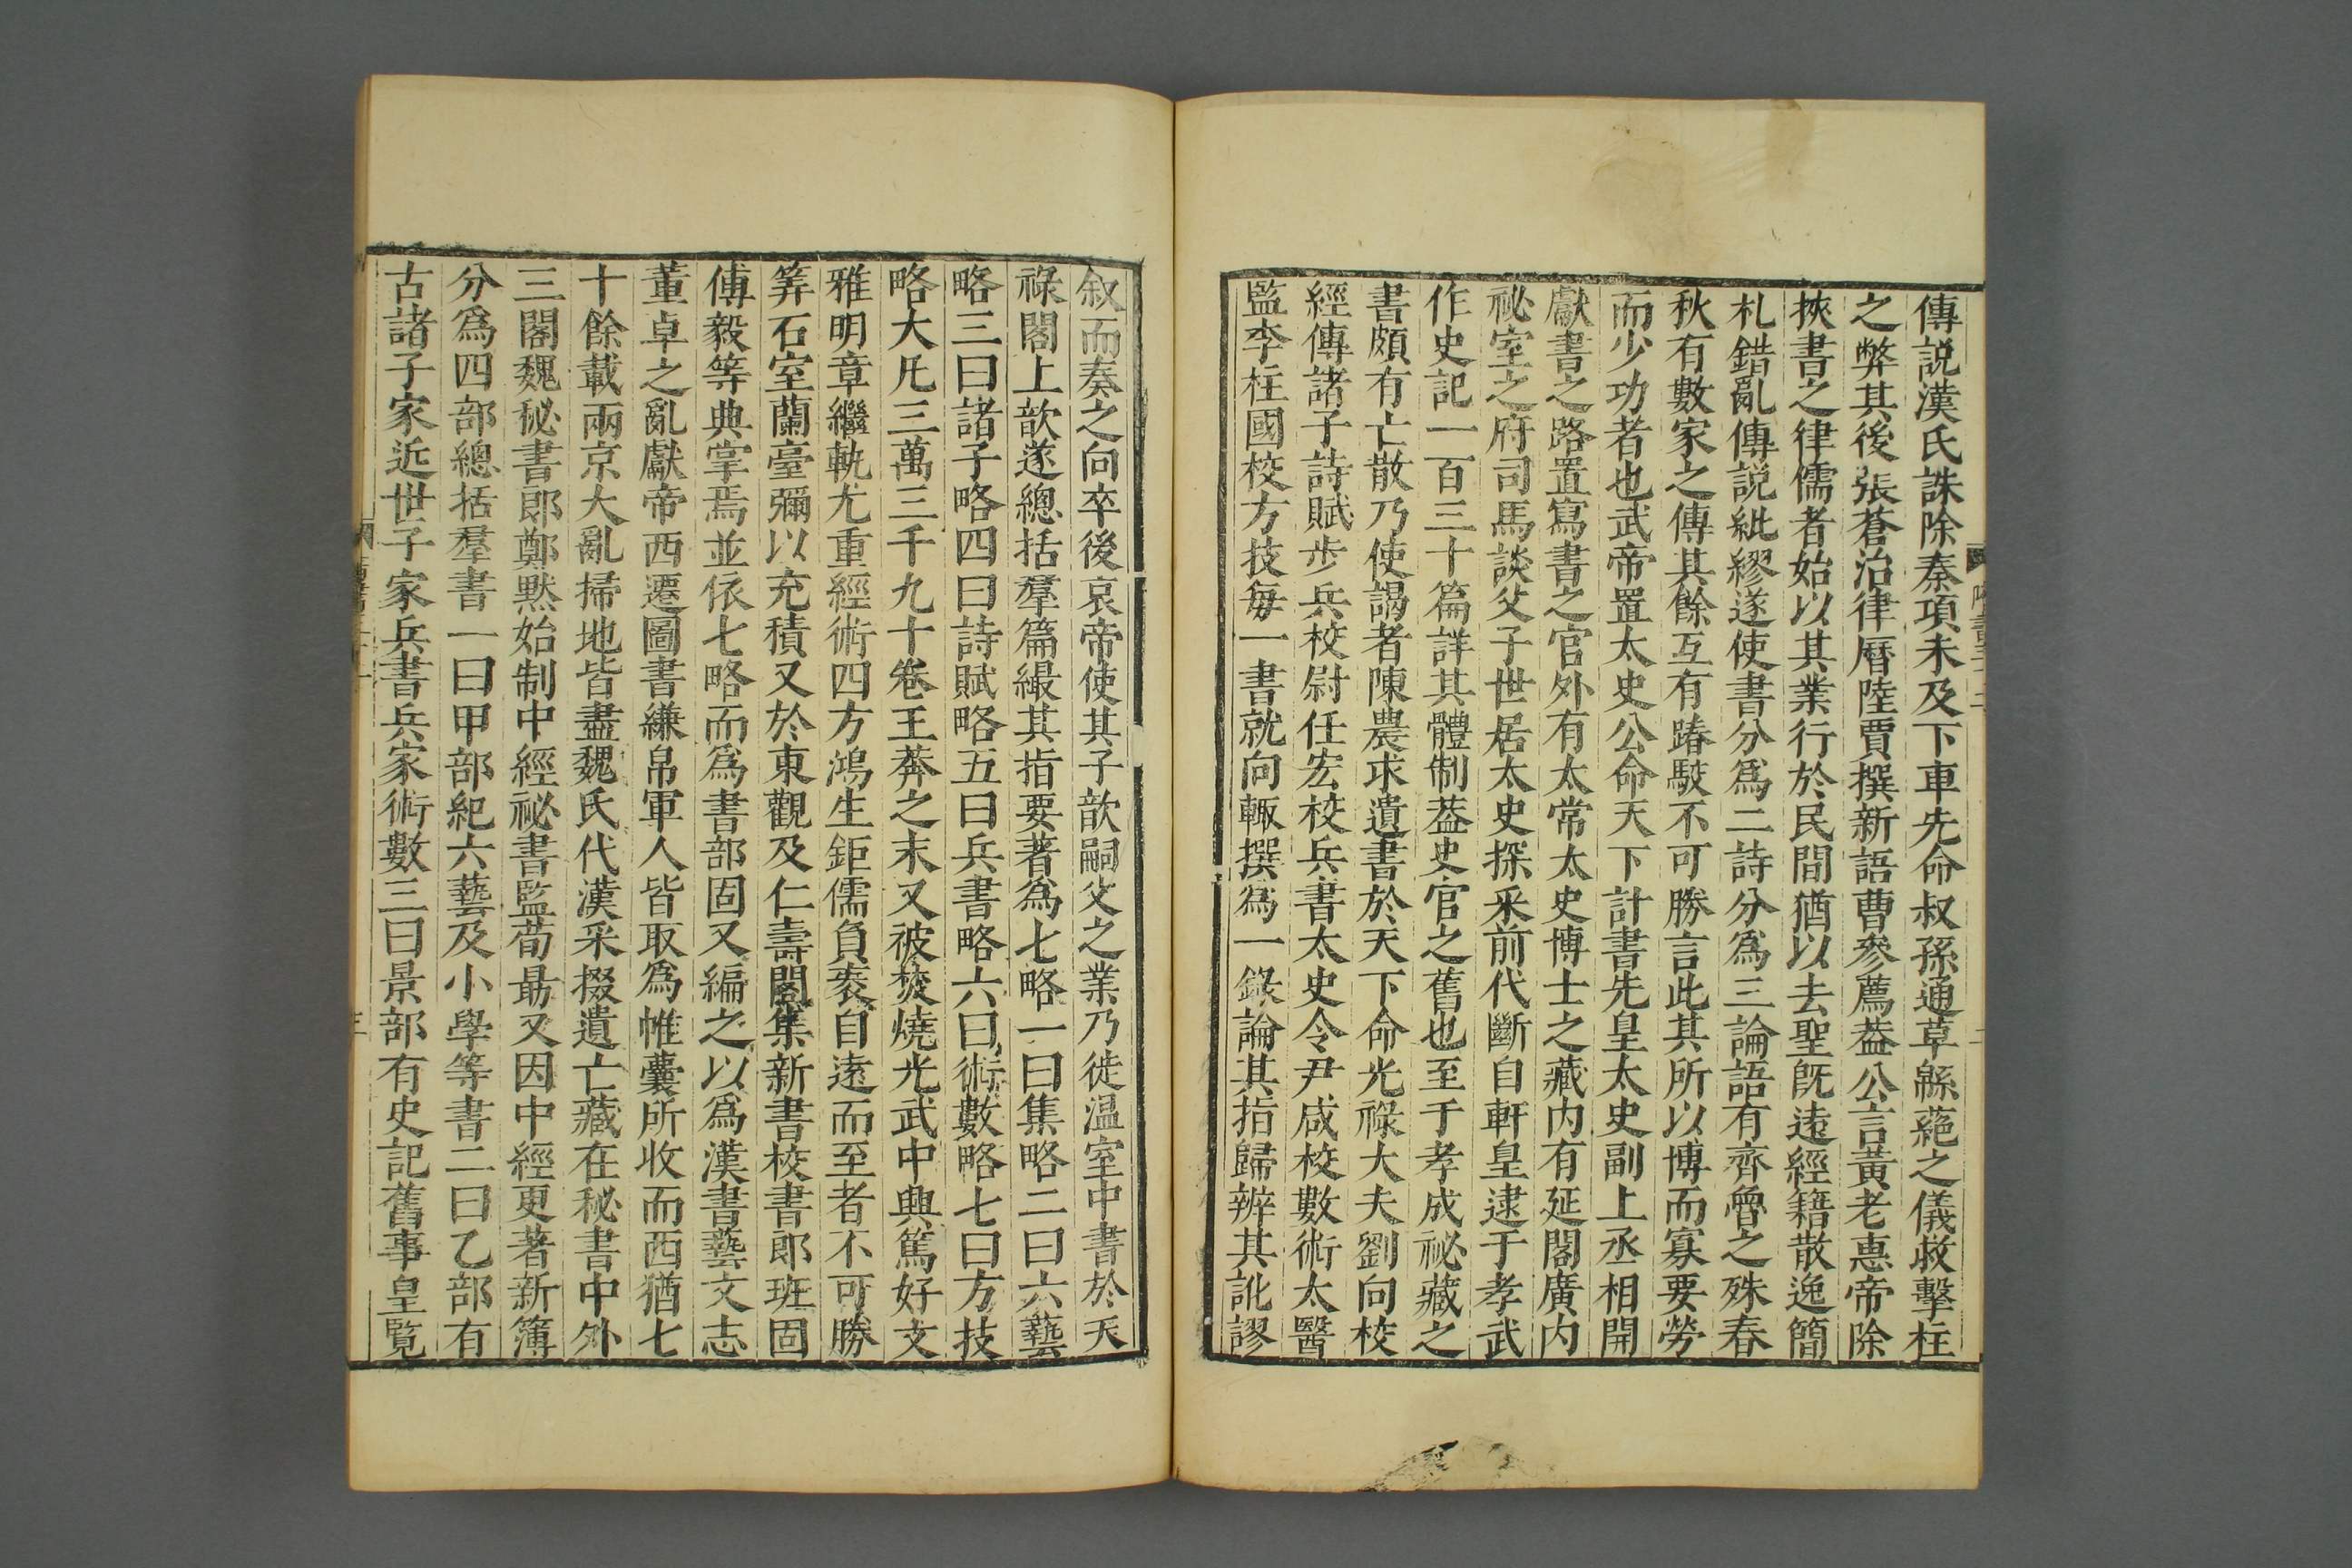 傳説漢氏誅除秦項未及下車先命叔孫通草緜蕝之儀救擊柱
之弊其後張蒼治律曆陸賈撰新語曹參薦葢公言黃老惠帝除
挾書之律儒者始以其業行於民間猶以去聖旣遠經籍散逸簡
札錯亂傳説紕繆遂使書分爲二詩分爲三論語有齊魯之殊春
秋有數家之傳其餘互有踳駮不可勝言此其所以博而寡要勞
而少功者也武帝置太史公命天下計書先皇太史副上丞相開
獻書之路置寫書之官外有太常太史博士之藏内有延閣廣内
祕室之府司馬談父子世居太史探采前代斷自軒皇逮于孝武
作史記一百三十篇詳其體制葢史官之舊也至于孝成祕藏之
書頗有亡散乃使謁者陳農求遺書於天下命光祿大夫劉向校
經傳諸子詩賦步兵校尉任宏校兵書太史令尹咸校數術太醫
監李柱國校方技每一書就向輙撰爲一錄論其指歸辨其訛謬
叙而奏之向卒後哀帝使其子歆嗣父之業乃徙温室中書於天
祿閣上歆遂總括羣篇撮其指要著爲七略一曰集略二曰六藝
略三曰諸子略四曰詩賦略五曰兵書略六曰術數略七曰方技
略大凡三萬三千九十卷王莽之末又被焚燒光武中興篤好文
雅明章繼軌尤重經術四方鴻生鉅儒負袠自遠而至者不可勝
筭石室蘭臺彌以充積又於東觀及仁壽閣集新書校書郎班固
傅毅等典掌焉並依七略而爲書部固又編之以爲漢書藝文志
董卓之亂獻帝西遷圖書縑帛軍人皆取爲帷囊所收而西猶七
十餘載兩京大亂掃地皆盡魏氏代漢采掇遺亡藏在秘書中外
三閣魏秘書郎鄭黙始制中經祕書監荀勗又因中經更著新簿
分爲四部總括羣書一曰甲部紀六藝及小學等書二曰乙部有
古諸子家近世子家兵書兵家術數三曰景部有史記舊事皇覽